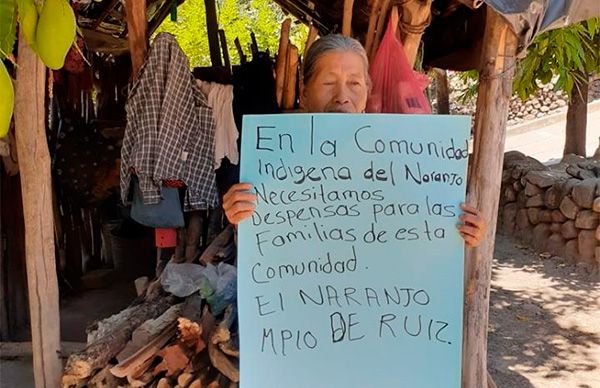 En la Comunidad
Indígena del Naranjo
Necesitamos
Despensas para las
Familias de esta
Comunidad.
El NARANJO
MPIO DE RUIZ.